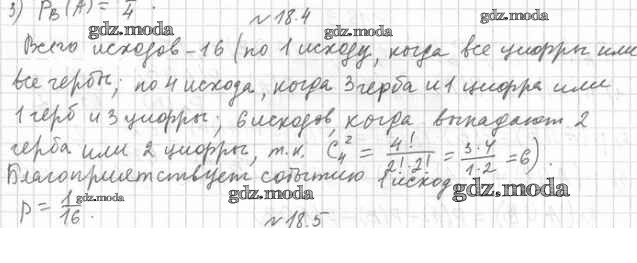 3) P_B(A) = 1/4.
№18.4
gdz.moda gdz.moda gdz.moda
Всего исходов - 16 (по 1 исходу, когда все цифры или
все гербы; по 4 исхода, когда 3 герба и 1 цифра или
1 герб и 3 цифры; 6 исходов, когда выпадают 2
герба или 2 цифры, т.к. C_4^2 = 4!/(2!·2!) = (3·4)/(1·2) = 6).
Благоприятствует событию 1 исход
gdz.moda gdz.moda gdz.moda
p = 1/16.
№18.5